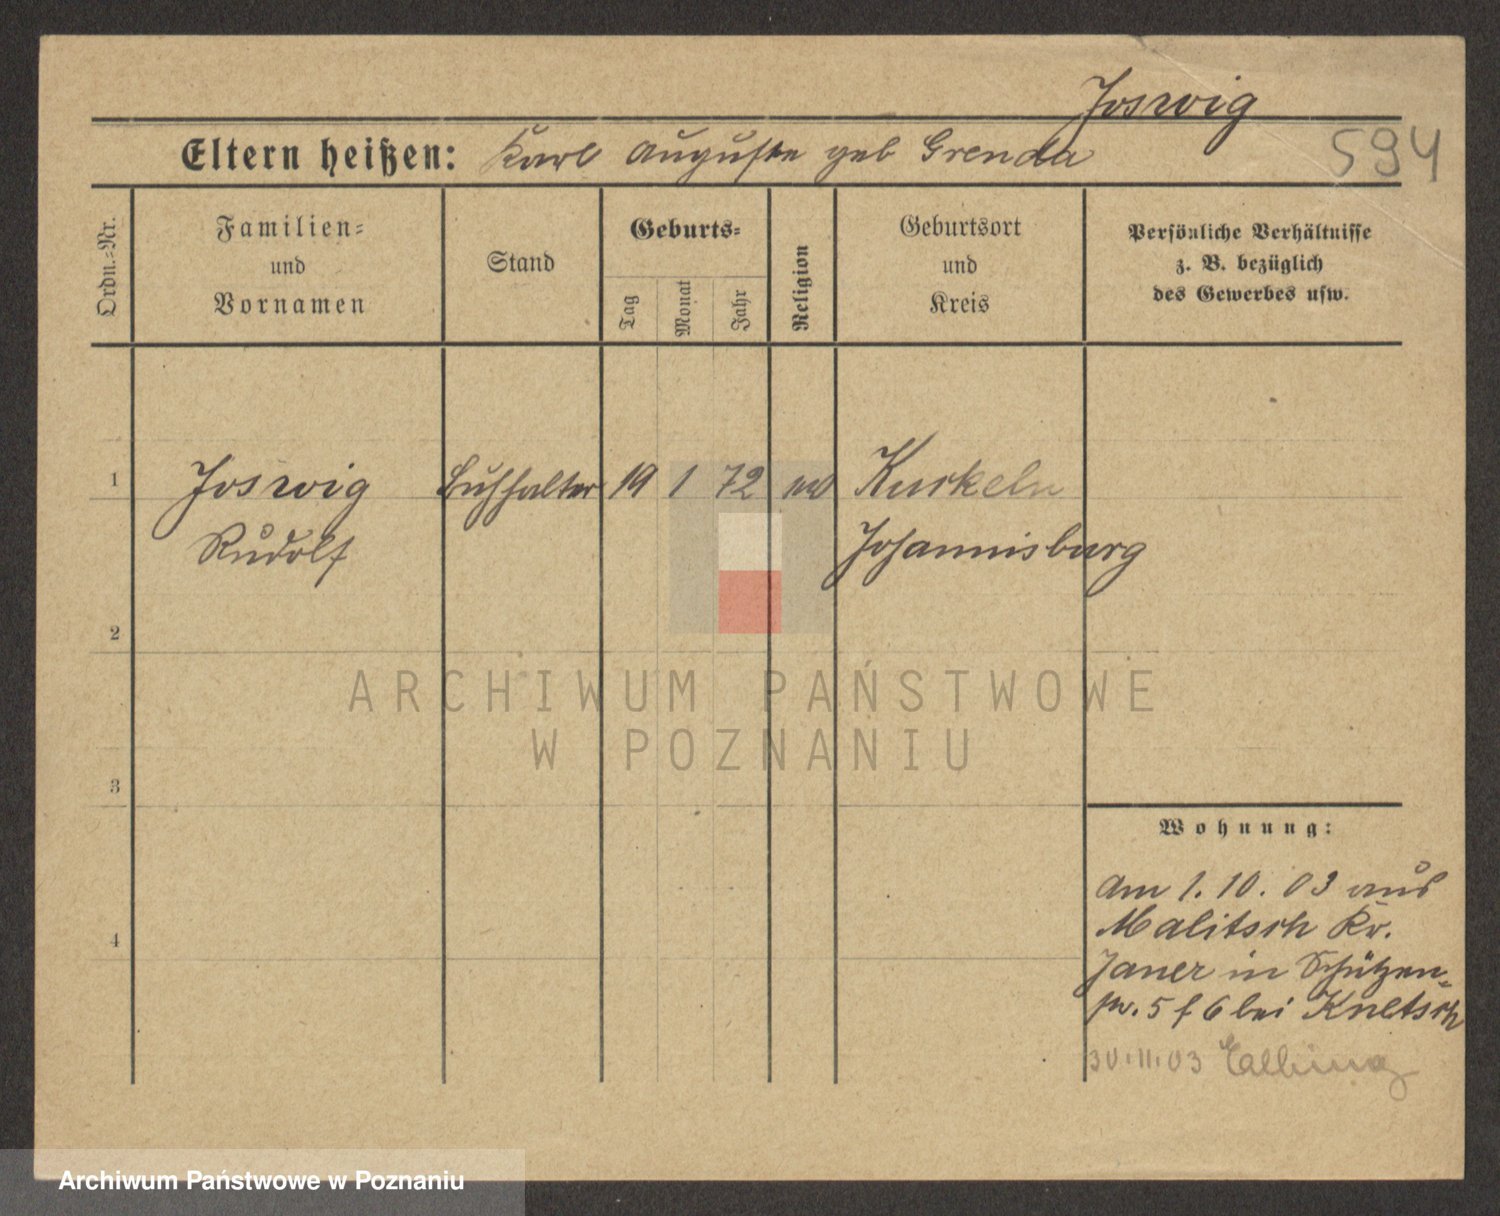 Joswig
594
Eltern heißen: Karl Auguste geb Grenda
Ordn.-Nr.
Familien-
und
Vornamen
Stand
Geburts-
Tag
Monat
Jahr
Religion
Geburtsort
und
Kreis
Persönliche Verhältnisse
z. B. bezüglich
des Gewerbes usw.
1 Joswig Buchhalter 19 1 72 Kurkeln
Rudolf Johannisburg
2
3
4
ARCHIWUM PAŃSTWOWE
W POZNANIU
Wohnung:
am 1.10.03 aus
Malitsch Kr.
Janer in Schützen-
str. 5 f 6 bei Knetsch
30.11.03 Elbing
Archiwum Państwowe w Poznaniu